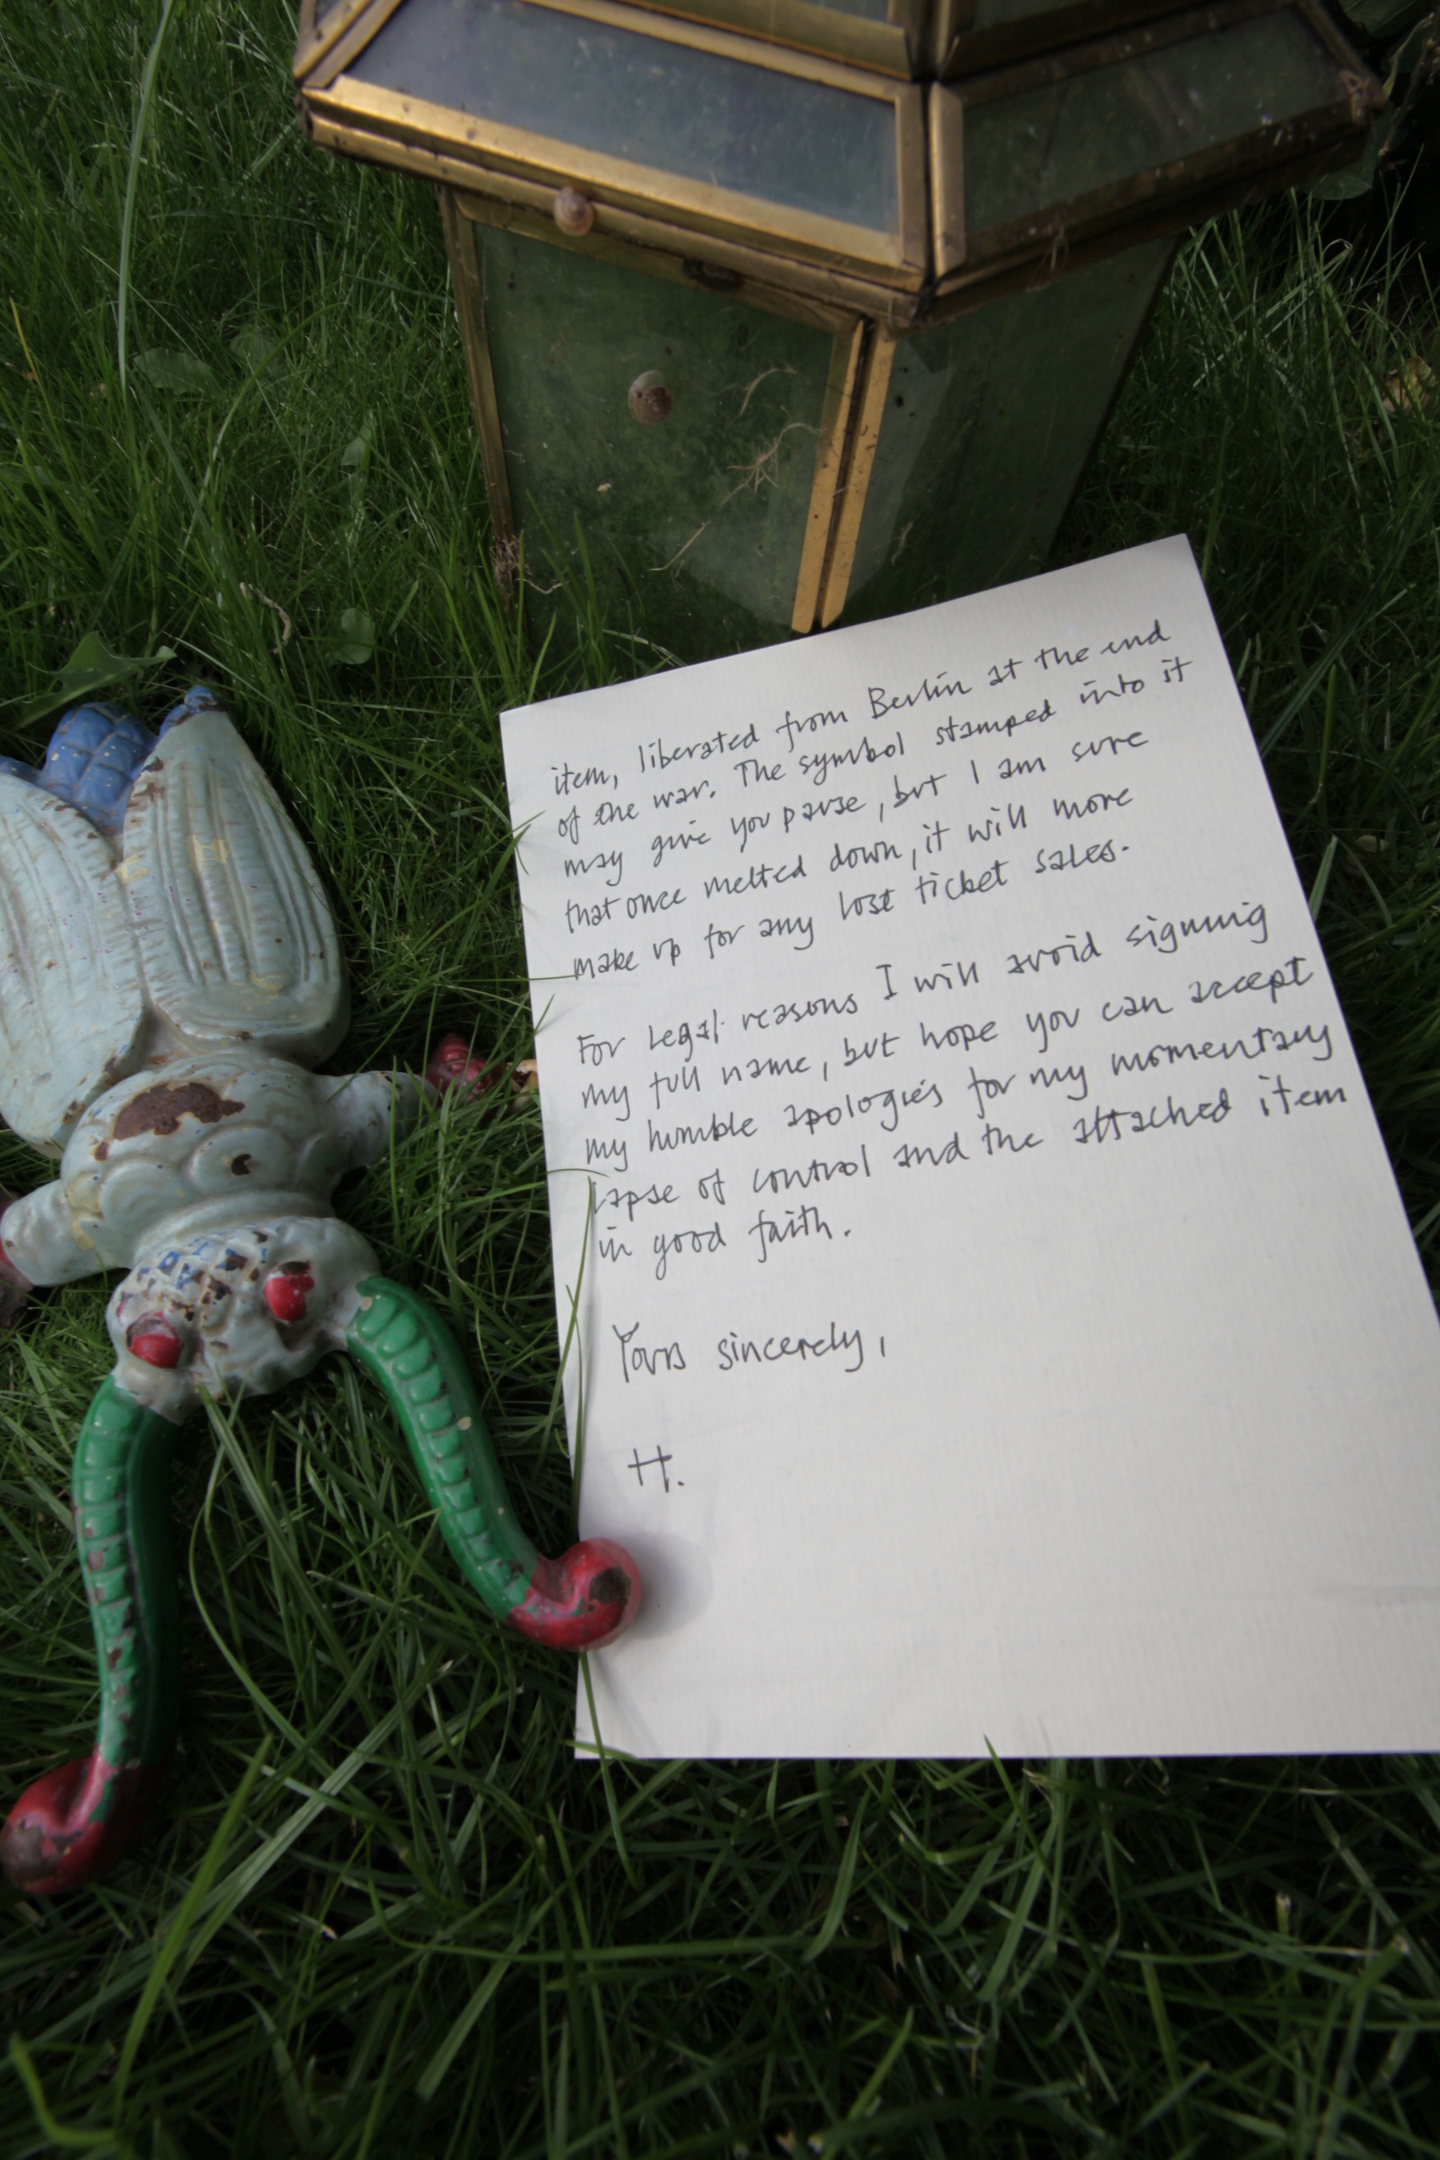 item, liberated from Berlin at the end
of the war. The symbol stamped into it
may give you pause, but I am sure
that once melted down, it will more
make up for any lost ticket sales.
For legal reasons I will avoid signing
my full name, but hope you can accept
my humble apologies for my momentary
lapse of control and the attached item
in good faith.
Yours sincerely,
H.